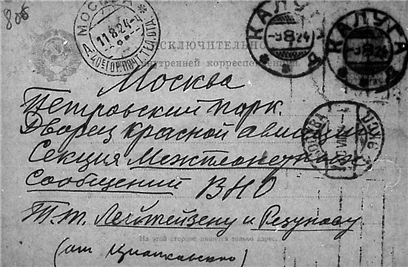 806
МОСКВА
11.8.24
КАЛУГА
-9 8 24
КАЛУГА
-9 8 24
ИСКЛЮЧИТЕЛЬНО
внутренней корреспонденции
Москва
Петровский парк.
Дворец Красной Авиации
Секция Межпланетных
Сообщений ВНО
Т.т. Лейтейзену и Резунову
На этой стороне пишется только адрес.
(от Циолковского)